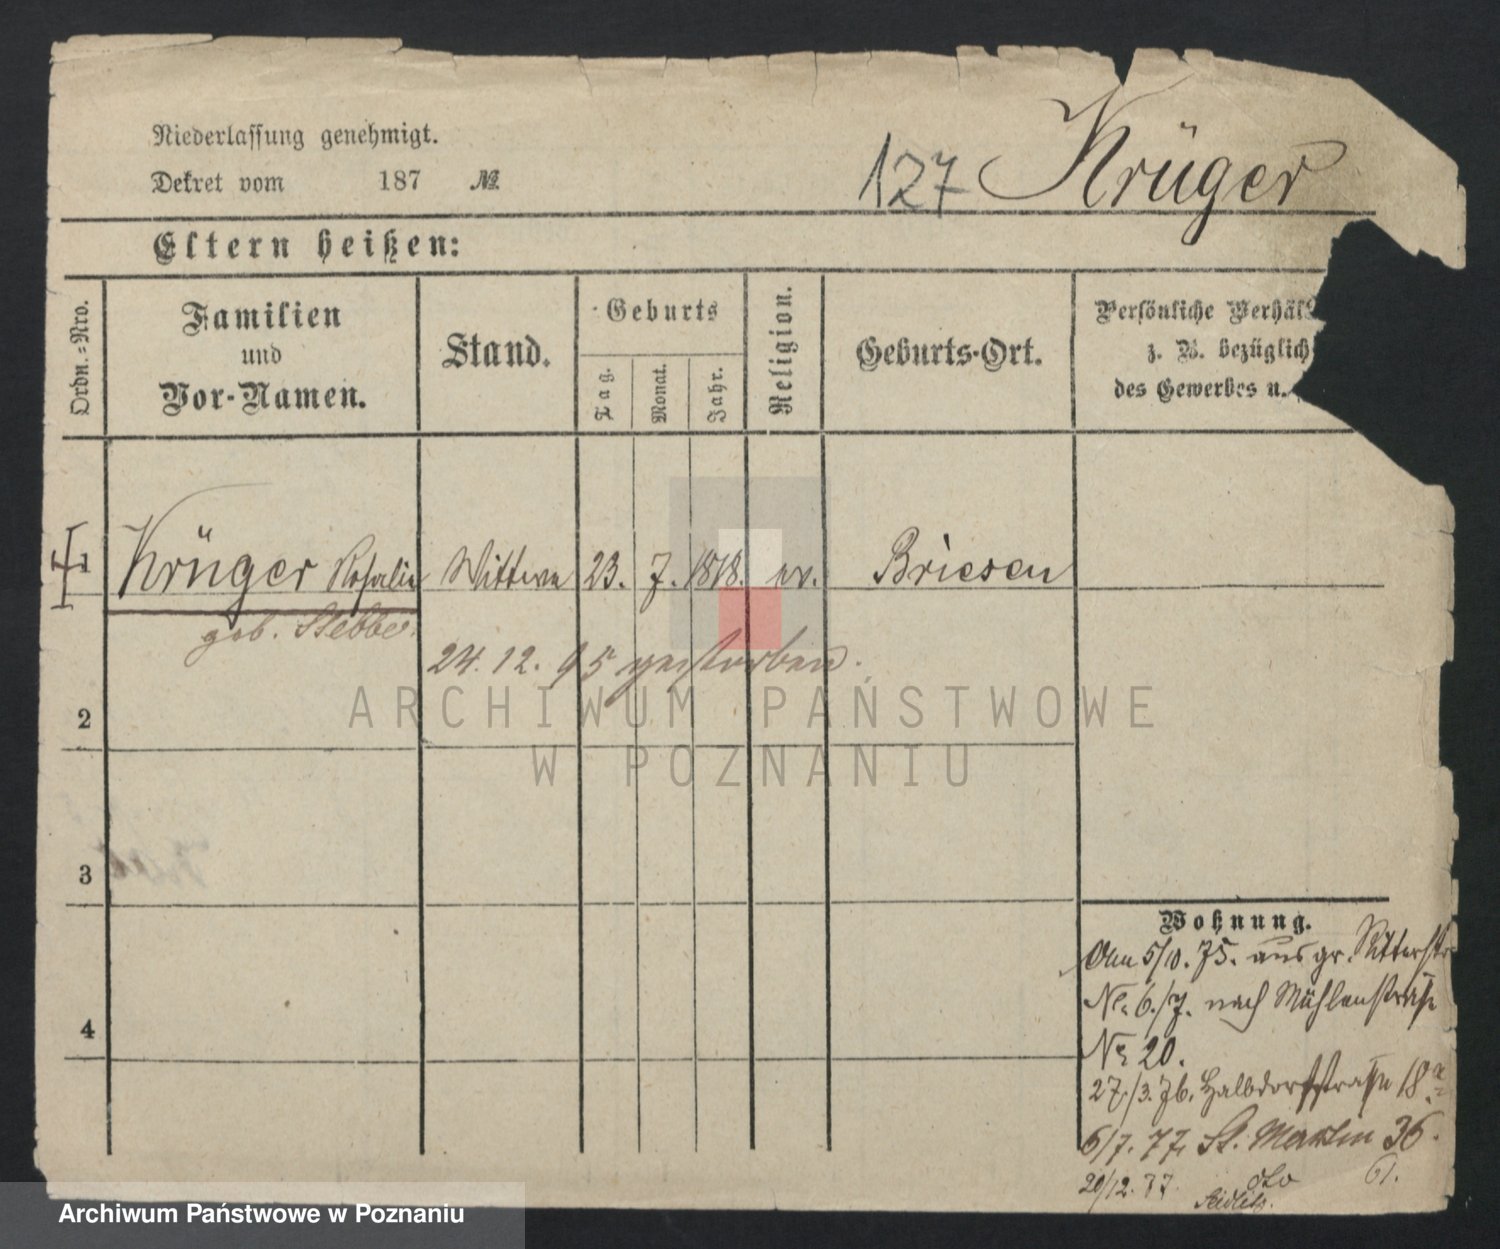 Niederlassung genehmigt.
Dekret vom 187 №
127 Krüger
Eltern heißen:
Ordn.=Nro.
Familien
und
Vor-Namen.
Stand.
Geburts
Tag.
Monat.
Jahr.
Religion.
Geburts-Ort.
Persönliche Verhäl
z. B. bezüglich
des Gewerbes u.
1 Krüger Rosalie Wittwe 23. 7. 1818. ev. Briesen
geb. Stebbe.
24. 12. 95 gestorben.
2
3
4
Wohnung.
Am 5/10. 75. aus gr. Ritterstr
No 6./7. nach Mühlenstraße
No 20.
27/3. 76. Halbdorfstraße 18a
6/7. 77. St. Martin 36.
20/12. 77. dto 61.
Seidlitz.
ARCHIWUM PAŃSTWOWE
W POZNANIU
Archiwum Państwowe w Poznaniu